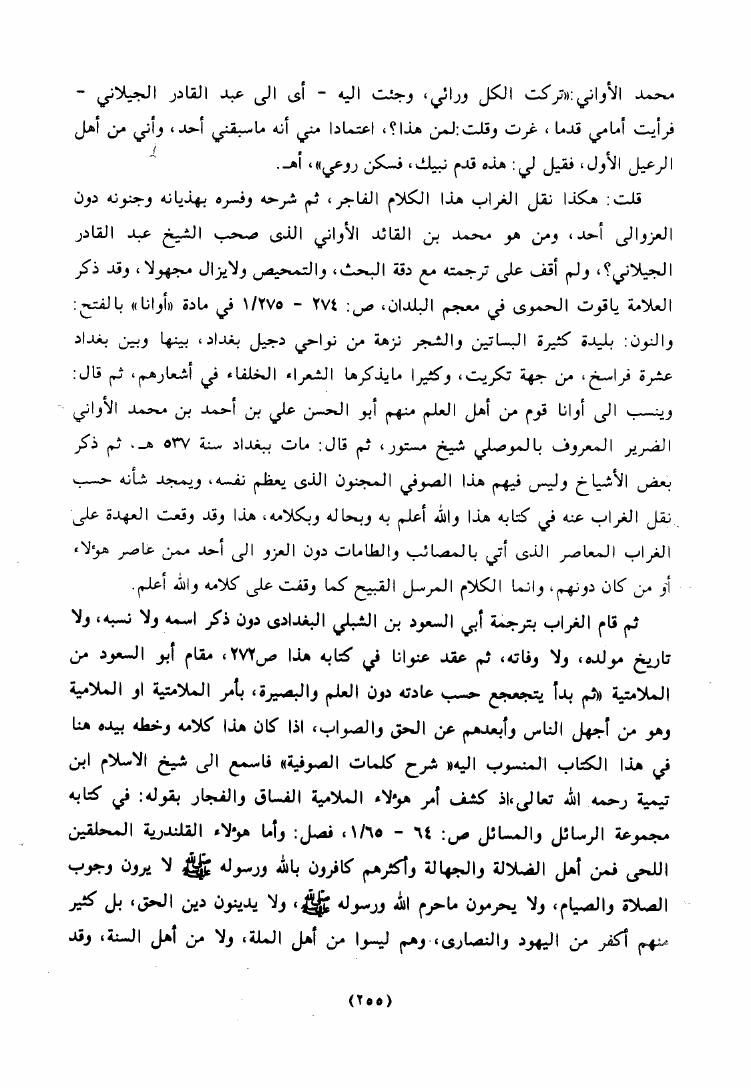 محمد الأواني:«تركت الكل ورائي، وجئت اليه - أى الى عبد القادر الجيلاني -
فرأيت أمامي قدما، غرت وقلت:لمن هذا؟، اعتمادا مني أنه ماسبقني أحد، وأني من أهل
الرعيل الأول، فقيل لي: هذه قدم نبيك، فسكن روعي»، أهـ.
قلت: هكذا نقل الغراب هذا الكلام الفاجر، ثم شرحه وفسره بهذيانه وجنونه دون
العزوالى أحد، ومن هو محمد بن القائد الأواني الذى صحب الشيخ عبد القادر
الجيلاني؟، ولم أقف على ترجمته مع دقة البحث، والتمحيص ولايزال مجهولا، وقد ذكر
العلامة ياقوت الحموى في معجم البلدان، ص: ٢٧٤ - ١/٢٧٥ في مادة «أوانا» بالفتح:
والنون: بليدة كثيرة البساتين والشجر نزهة من نواحي دجيل بغداد، بينها وبين بغداد
عشرة فراسخ، من جهة تكريت، وكثيرا مايذكرها الشعراء الخلفاء في أشعارهم، ثم قال:
وينسب الى أوانا قوم من أهل العلم منهم أبو الحسن علي بن أحمد بن محمد الأواني
الضرير المعروف بالموصلي شيخ مستور، ثم قال: مات ببغداد سنة ٥٣٧ هـ. ثم ذكر
بعض الأشياخ وليس فيهم هذا الصوفي المجنون الذى يعظم نفسه، ويمجد شأنه حسب
نقل الغراب عنه في كتابه هذا والله أعلم به وبحاله وبكلامه، هذا وقد وقعت العهدة على
الغراب المعاصر الذى أتي بالمصائب والطامات دون العزو الى أحد ممن عاصر هؤلاء
أو من كان دونهم، وانما الكلام المرسل القبيح كما وقفت على كلامه والله أعلم.
ثم قام الغراب بترجمة أبي السعود بن الشبلي البغدادى دون ذكر اسمه ولا نسبه، ولا
تاريخ مولده، ولا وفاته، ثم عقد عنوانا في كتابه هذا ص٢٧٢، مقام أبو السعود من
الملامتية «ثم بدأ يتجعجع حسب عادته دون العلم والبصيرة، بأمر الملامتية او الملامية
وهو من أجهل الناس وأبعدهم عن الحق والصواب، اذا كان هذا كلامه وخطه بيده هنا
في هذا الكتاب المنسوب اليه« شرح كلمات الصوفية» فاسمع الى شيخ الاسلام ابن
تيمية رحمه الله تعالى،اذ كشف أمر هؤلاء الملامية الفساق والفجار بقوله: في كتابه
مجموعة الرسائل والمسائل ص: ٦٤ - ١/٦٥، فصل: وأما هؤلاء القلندرية المحلقين
اللحى فمن أهل الضلالة والجهالة وأكثرهم كافرون بالله ورسوله ﷺ لا يرون وجوب
الصلاة والصيام، ولا يحرمون ماحرم الله ورسوله ﷺ، ولا يدينون دين الحق، بل كثير
منهم أكفر من اليهود والنصارى، وهم ليسوا من أهل الملة، ولا من أهل السنة، وقد
(٢٥٥)